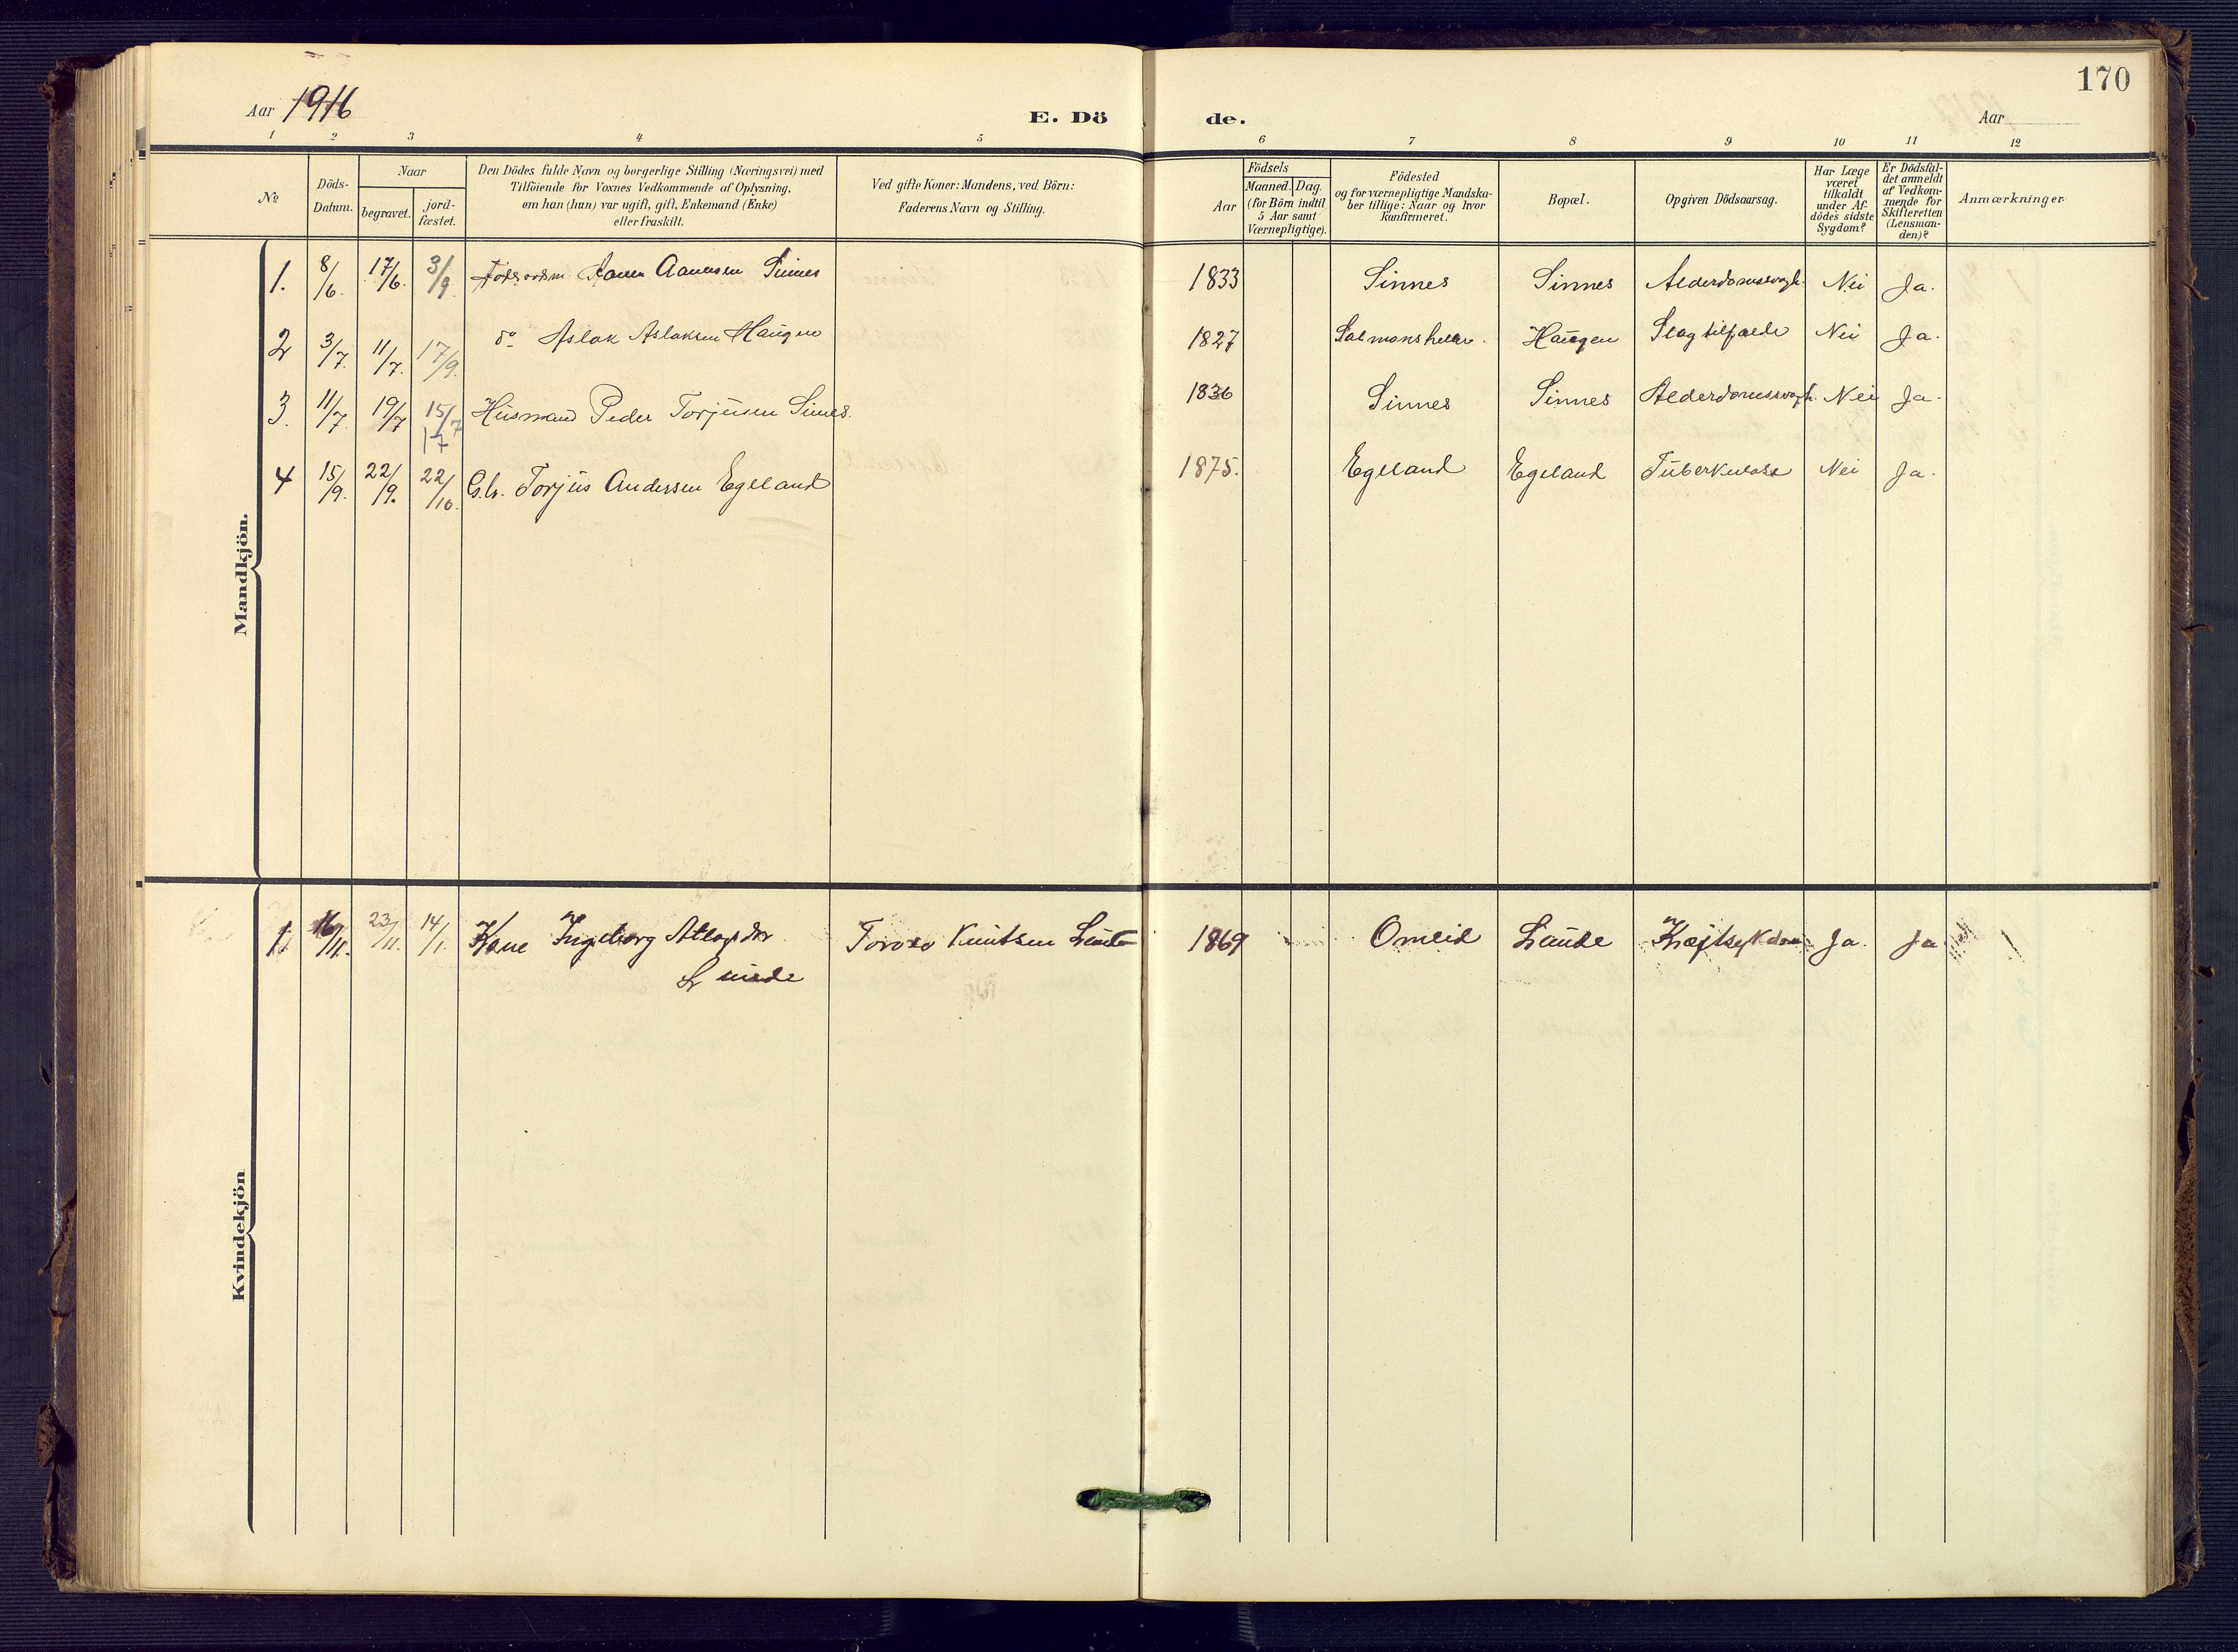 170
Aar 1916
E. Dö
de.
Aar
1 2 3 4 5 6 7 8 9 10 11 12
No
Döds-
Datum.
Naar
begravet.
jord-
fæstet.
Den Dödes fulde Navn og borgerlige Stilling (Næringsvei) med
Tilföiende for Voxnes Vedkommende af Oplysning,
om han (hun) var ugift, gift, Enkemand (Enke)
eller fraskilt.
Ved gifte Koner: Mandens, ved Börn:
Faderens Navn og Stilling.
Födsels
Aar
Maaned. Dag.
(for Börn indtil
5 Aar samt
Værnepligtige).
Födested
og for værnepligtige Mandska-
ber tillige: Naar og hvor
konfirmeret.
Bopæl.
Opgiven Dödsaarsag.
Har Læge
været
tilkaldt
under Af-
dödes sidste
Sygdom?
Er Dödsfal-
det anmeldt
af Vedkom-
mende for
Skifteretten
(Lensman-
den)?
Anmærkninger
Mandkjön.
1. 8/6. 17/6. 3/9. Aanensen Sinnes 1833 Sinnes Sinnes Alderdomssvagh. Nei Ja.
2 3/7. 11/7. 17/9. do Aslak Aslaksen Haugen 1827 Haugen Slagtilfælde Nei Ja.
3. 11/7. 19/7 15/7 17 Husmand Peder Torjusen Sinnes. 1836 Sinnes Sinnes Alderdomssvagh. Nei Ja.
4 15/9. 22/9. 22/10. G.br. Torjus Andersen Egeland 1875. Egeland Egeland Tuberkulose Nei Ja.
Kvindekjön
1. 16/11. 23/11. 14/1. Kone Ingeborg Knutsen 1869 Omlid Lunde Kræftsykdom Ja. Ja.
Lunde